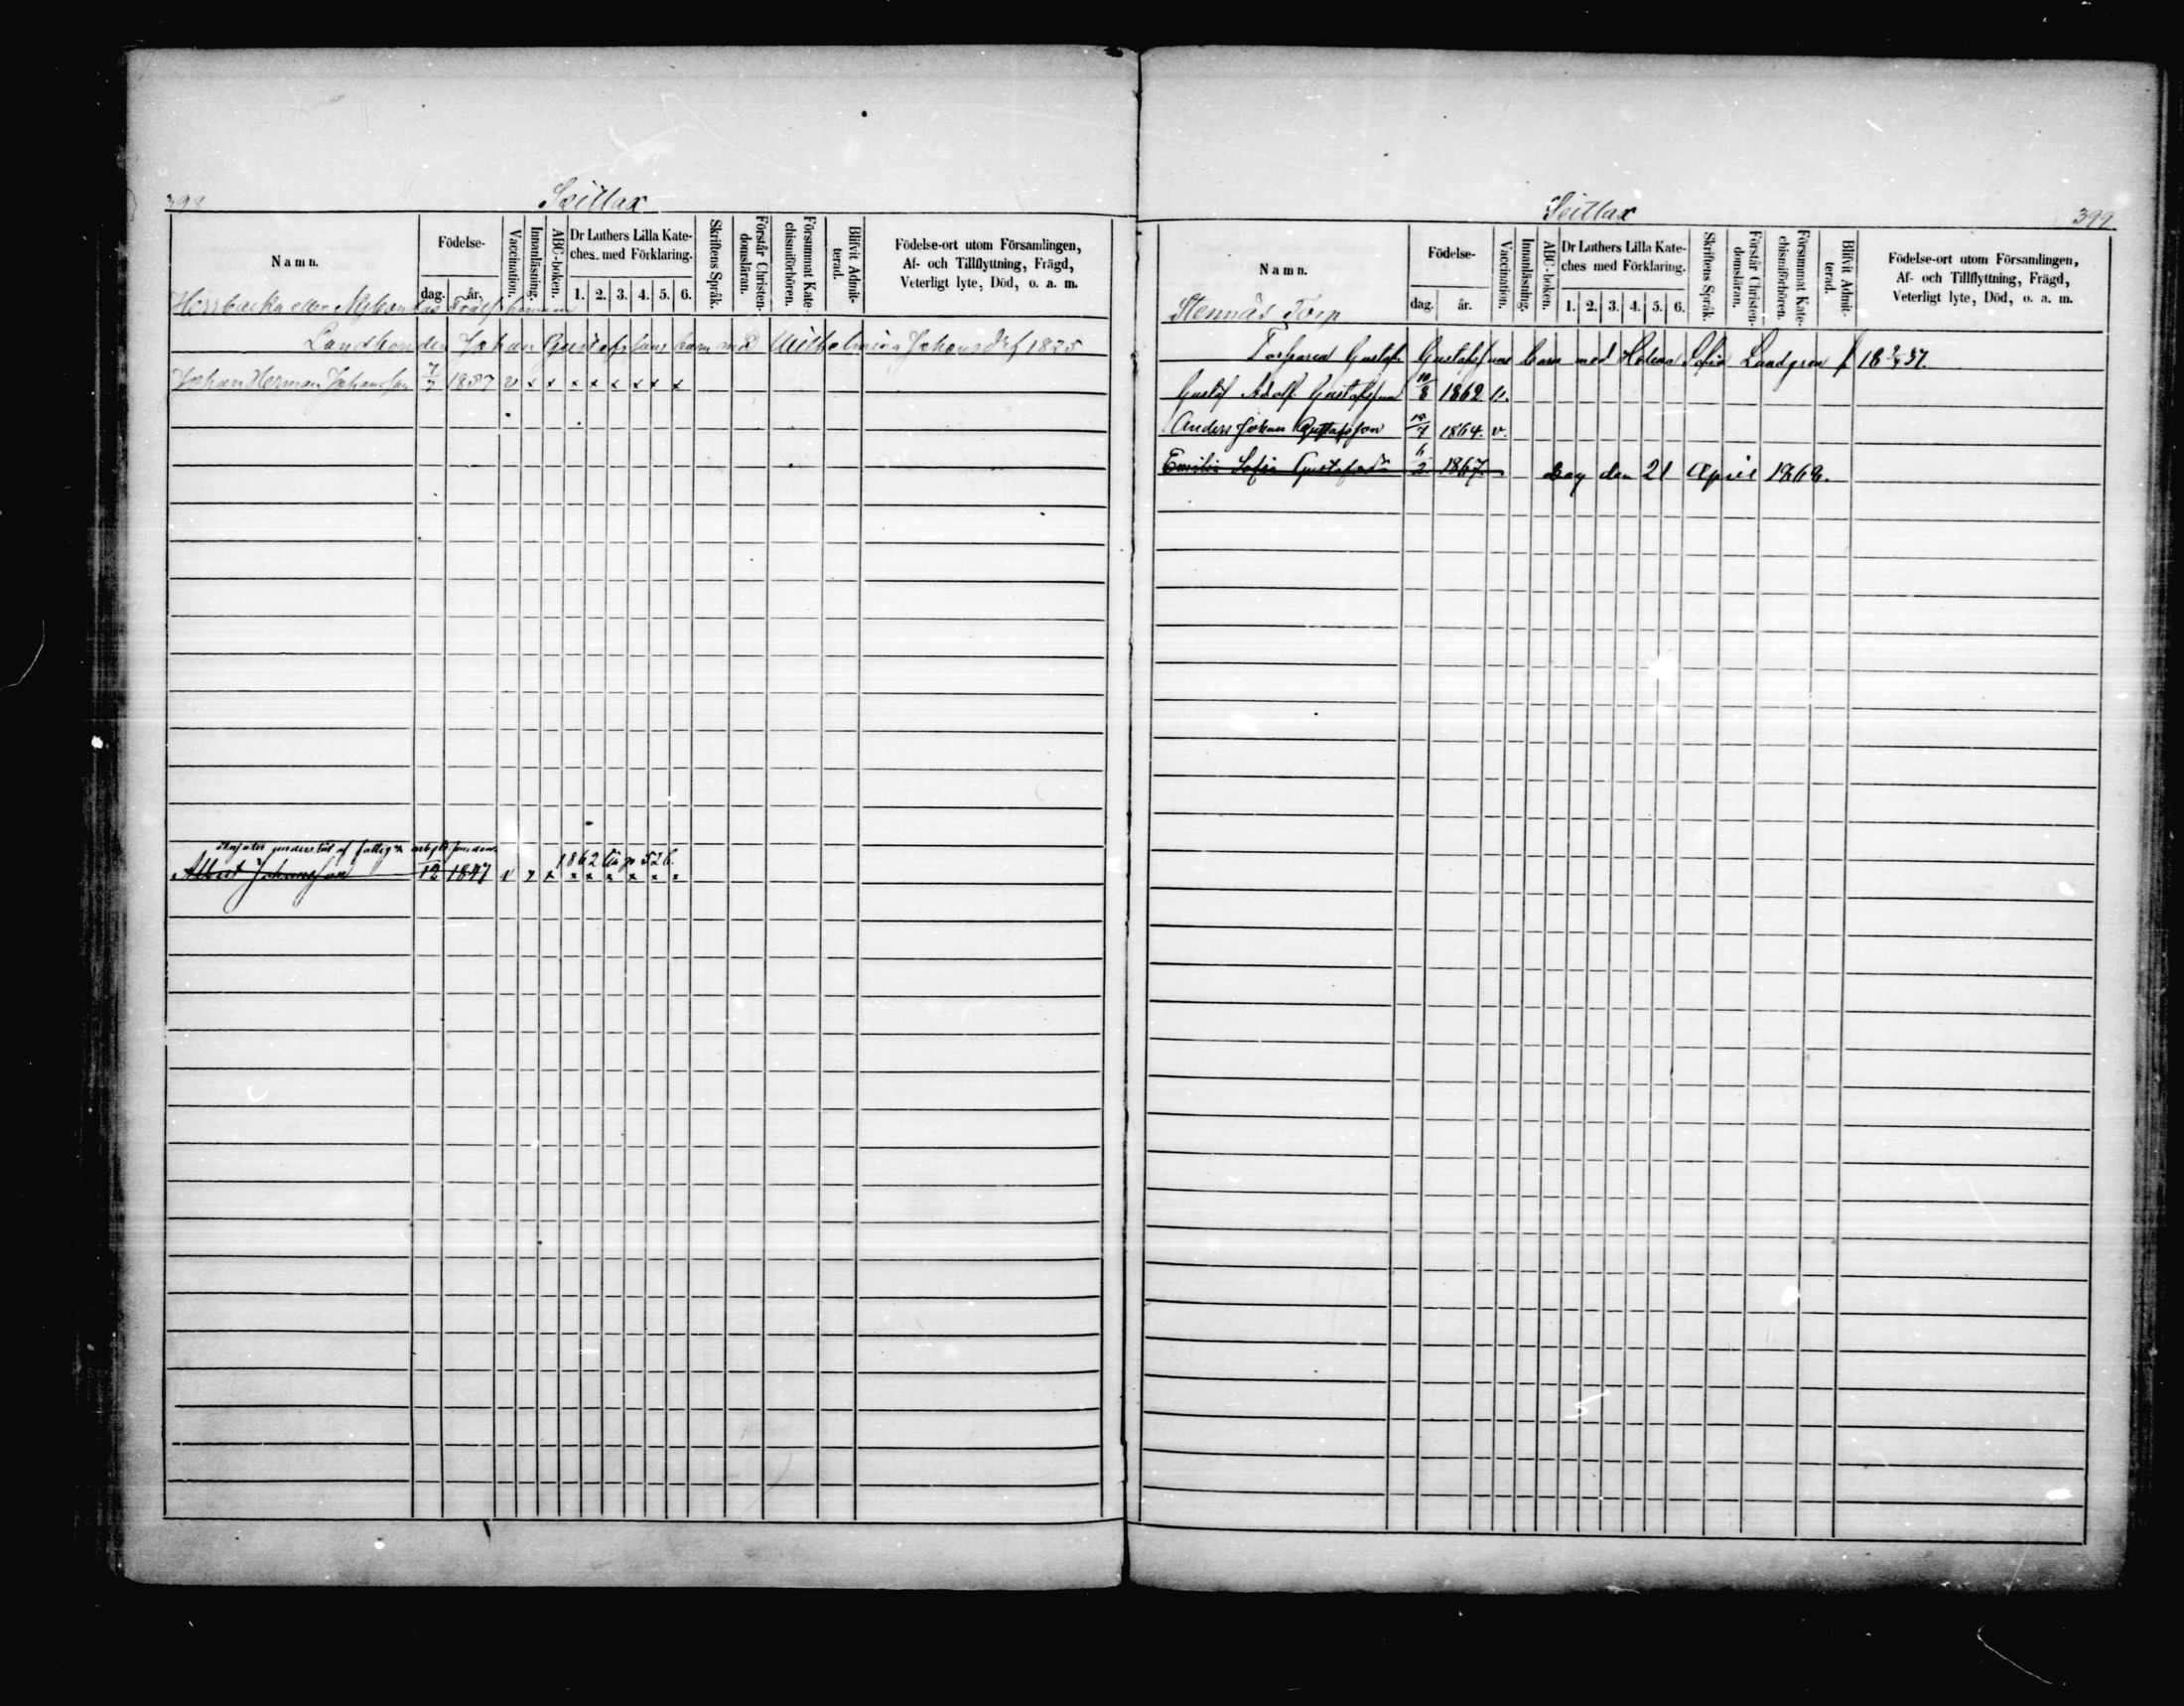 398
Seitlax
Namn.
Födelse-
dag.
år.
Vaccination.
Innanläsning.
ABC-boken.
Dr Luthers Lilla Kate-
ches med Förklaring.
1. 2. 3. 4. 5. 6.
Skriftens Språk.
Förstår Christen-
domsläran.
Försummat Kate-
chismiförhören.
Blifvit Admit-
terad.
Födelse-ort utom Församlingen,
Af- och Tillflyttning, Frägd,
Veterligt lyte, Död, o. a. m.
Herrbacka eller
Landbonden Johan Gustafssons barn med Wilhelmina Johansd:r f 1825
Johan Herman Johansson 7/3 1857 v x x x x x x x x
understöd af fattig
1862 lif p 526.
Albert Johansson 12 1847 v x x x x x x x x
Seitlax
399
Namn.
Födelse-
dag.
år.
Vaccination.
Innanläsning.
ABC-boken.
Dr Luthers Lilla Kate-
ches med Förklaring.
1. 2. 3. 4. 5. 6.
Skriftens Språk.
Förstår Christen-
domsläran.
Försummat Kate-
chismiförhören.
Blifvit Admit-
terad.
Födelse-ort utom Församlingen,
Af- och Tillflyttning, Frägd,
Veterligt lyte, Död, o. a. m.
Stennäs Torp
Torparen Gustaf Gustafssons barn med Helena Sofia Lundgren f 18 2/4 37.
Gustaf Adolf Gustafsson 10/8 1862 v.
Anders Johan Gustafsson 19/7 1864. v.
Emilia Sofia Gustafsd:r 6/2 1867. Dog den 21 April 1868.